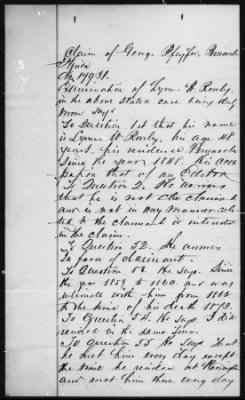 Claim of Geng. Pfeiffer, Pensacola
Florida
No 14931.
Examination of Lynn W. Rowley
in the above stated case being duly
sworn says
To Question 1st that his name
is Lynn W. Rowley, his age 48
years, his residence Pensacola
since the year 1848. his occu
pation that of an Editor
To Question 2. He answers
that he is not the claimant
and is not in any manner rela
ted to the claimant or interested
in the claim.
To Question 52. He answers
In favor of claimant.
To Question 53. He says. Since
the year 1859 to 1860. and was
intimate with him from 1862
to the time of his death 1873.
To Question 54. He says I did
reside in the same Town.
To Question 55 He says That
he met him every day except
the time he resided at Warrington
and met him there every day